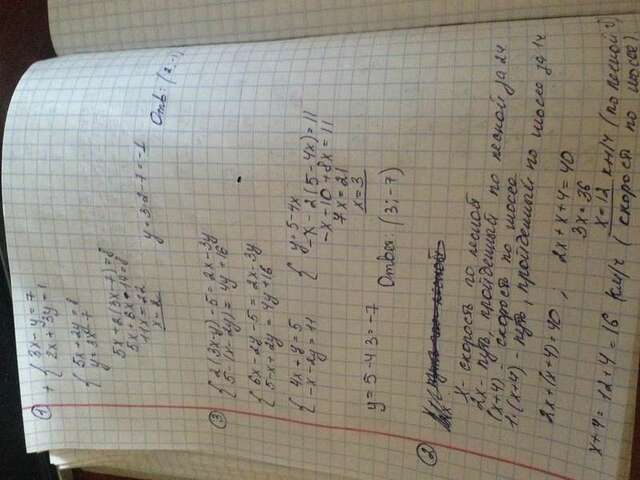 ① + { 3x - y = 7
2x + 3y = 1
{ 5x + 2y = 8
y = 3x - 7
5x + 2(3x - 7) = 8
5x + 6x - 14 = 8
11x = 22
x = 2
y = 3·2 - 7 = -1
Отв: (2; -1)
③ { 2(3x - y) - 5 = 2x - 3y
5 - (x - 2y) = 4y + 16
{ 6x - 2y - 5 = 2x - 3y
5 - x + 2y = 4y + 16
{ 4x + y = 5
-x - 2y = 11
{ y = 5 - 4x
-x - 2(5 - 4x) = 11
-x - 10 + 8x = 11
7x = 21
x = 3
y = 5 - 4·3 = -7
Ответ: (3; -7)
②
x - скорость по лесной
2x - путь, пройденный по лесной за 2ч
(x+4) - скорость по шоссе
1·(x+4) - путь, пройденный по шоссе за 1ч
2x + (x+4) = 40 ; 2x + x + 4 = 40
3x = 36
x = 12 км/ч (по лесной)
x + 4 = 12 + 4 = 16 км/ч (скорость по шоссе)